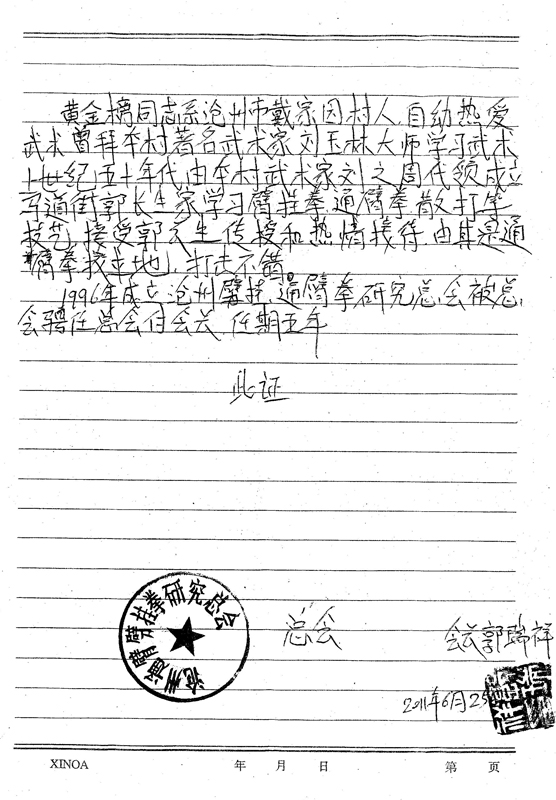 黄金榜同志系沧州市戴家园村人,自幼热爱
武术曾拜本村著名武术家刘玉林大师学习武术
世纪五十年代由本村武术家刘之周代领
道街郭长生家学习劈挂拳,通臂拳散打等
技艺,接受郭长生传授和热情接待,由其是通
臂拳 打击不错
1996年成立沧州劈挂通臂拳研究总会被总
会聘任总会付会长 任期五年
此证
沧州通臂劈挂拳研究总会
总会
会长郭瑞祥
2011年6月25
XINOA 年 月 日 第 页